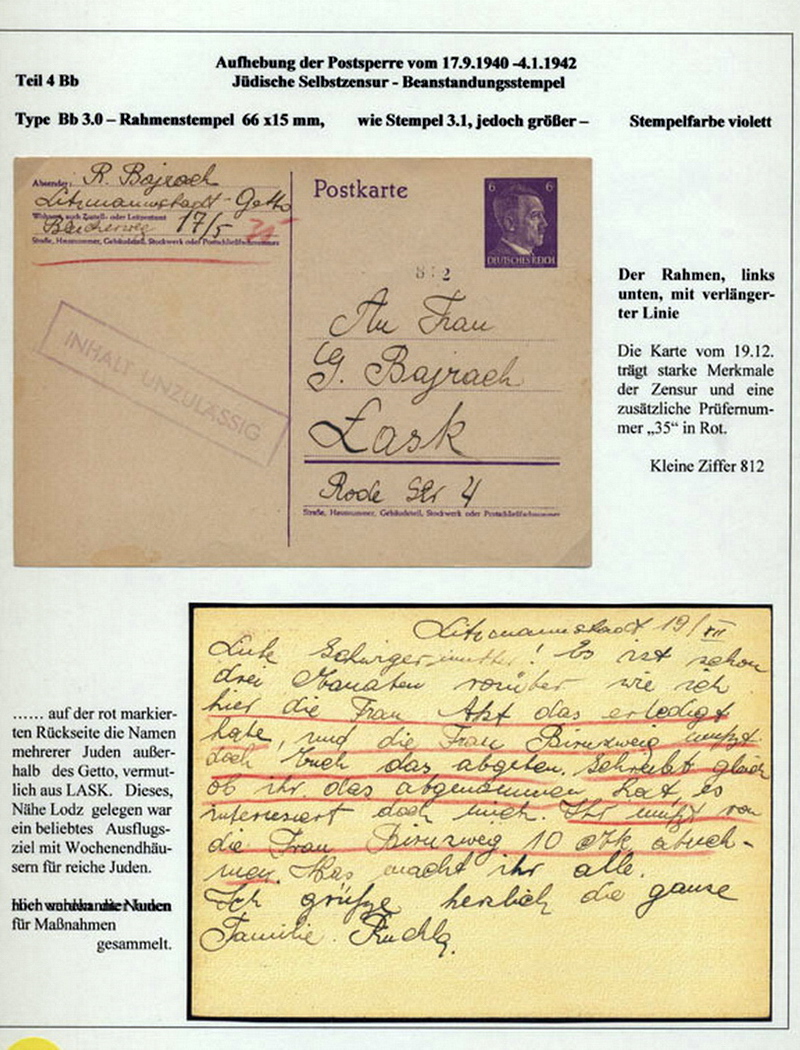 Aufhebung der Postsperre vom 17.9.1940 -4.1.1942
Teil 4 Bb
Jüdische Selbstzensur - Beanstandungsstempel
Type Bb 3.0 – Rahmenstempel 66 x15 mm, wie Stempel 3.1, jedoch größer – Stempelfarbe violett
Absender: R. Bajrach
Litzmannstadt - Getto
Wohnort, auch Zustell- oder Leitpostamt
17/5 35
Straße, Hausnummer, Gebäudeteil, Stockwerk oder Postschließfachnummer
INHALT UNZULÄSSIG
Postkarte
6 6
DEUTSCHES REICH
8 2
An Frau
G. Bajrach
Łask
Rode 4
Straße, Hausnummer, Gebäudeteil, Stockwerk oder Postschließfachnummer
Der Rahmen, links
unten, mit verlänger-
ter Linie
Die Karte vom 19.12.
trägt starke Merkmale
der Zensur und eine
zusätzliche Prüfernum-
mer „35“ in Rot.
Kleine Ziffer 812
Litzmannstadt 19/XII
Liebe ! Es ist schon
drei Monaten vorüber wie ich
hier die Frau das erledigt
habe, und die Frau Birnzweig mußt
doch Euch das abgeben. Schreibt gleich
ob ihr das abgenommen hat, es
interessiert doch mich. Ihr mußt von
die Frau Birnzweig 10 Mk abneh-
men. Was macht ihr alle.
Ich grüße herzlich die ganze
Familie. Ruchla.
...... auf der rot markier-
ten Rückseite die Namen
mehrerer Juden außer-
halb des Getto, vermut-
lich aus LASK. Dieses,
Nähe Lodz gelegen war
ein beliebtes Ausflugs-
ziel mit Wochenendhäu-
sern für reiche Juden.
für Maßnahmen
gesammelt.